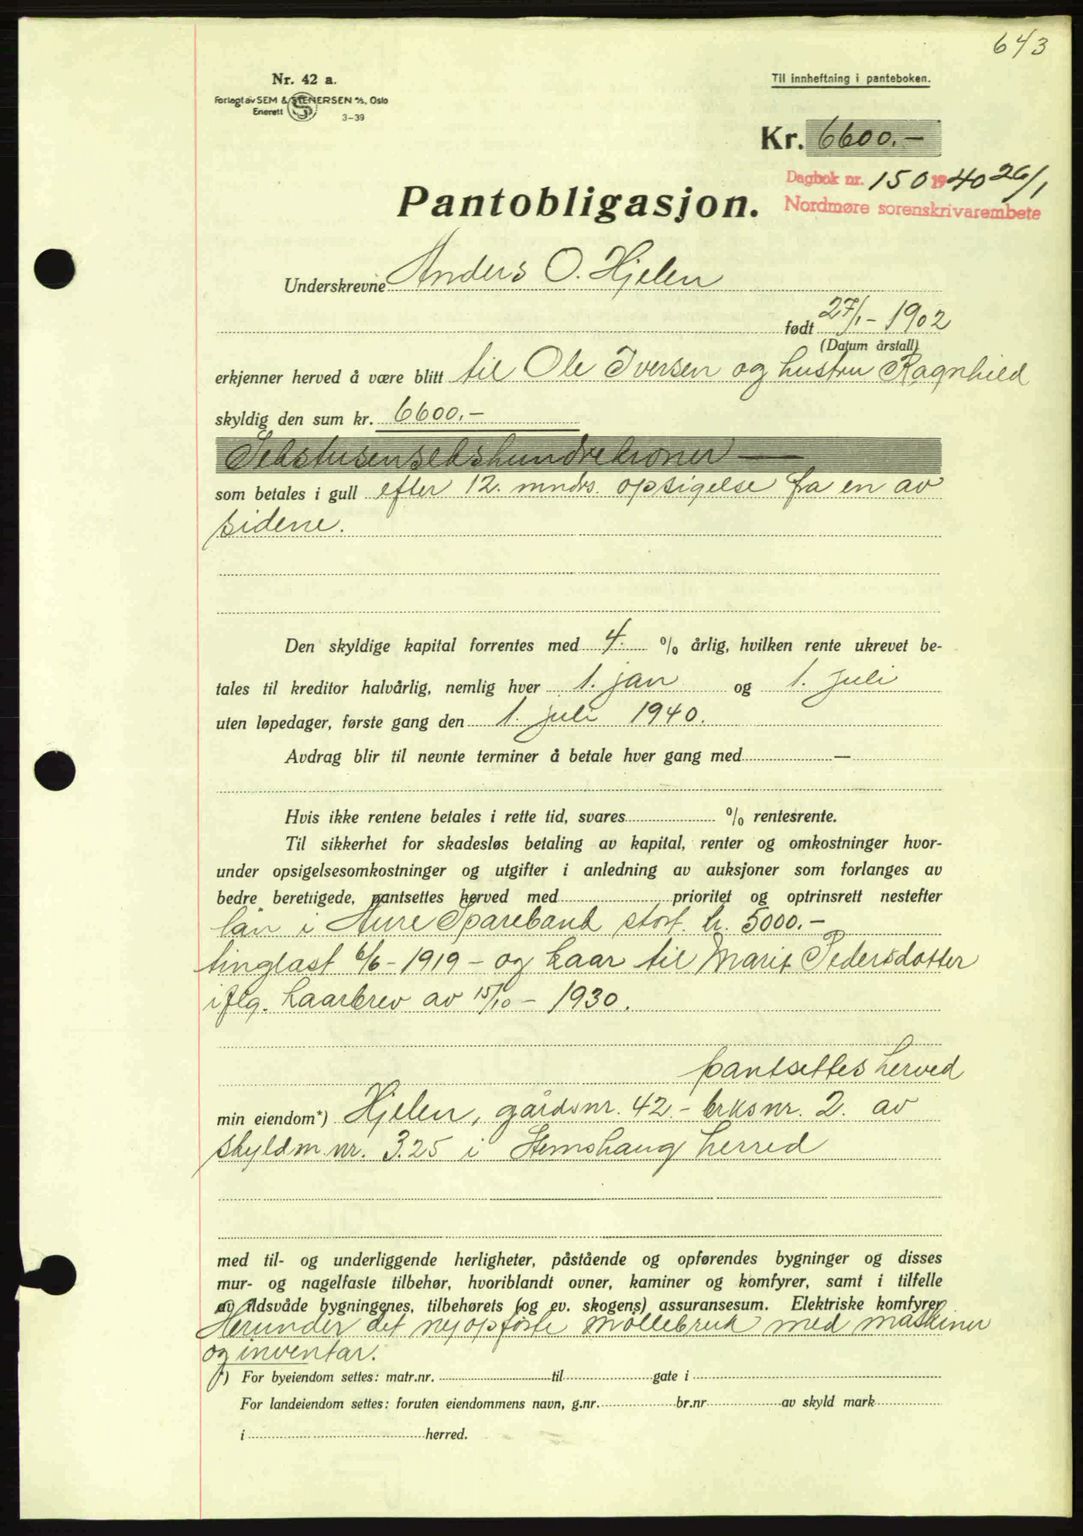 643
Nr. 42 a.
Til innheftning i panteboken.
Forlagt av SEM & STENERSEN A/S, Oslo
Enerett
3-39
Kr. 6600.-
Dagbok nr. 150 1940 26/1
Nordmøre sorenskrivarembete
Pantobligasjon.
Underskrevne Anders O. Hjelen
født 27/1-1902
(Datum årstall)
erkjenner herved å være blitt til Ole Iversen og hustru Ragnhild
skyldig den sum kr. 6600.-
Sekstusensekshundrekroner —
som betales i gull efter 12. mndrs. opsigelse fra en av
sidene.
Den skyldige kapital forrentes med 4. % årlig, hvilken rente ukrevet be-
tales til kreditor halvårlig, nemlig hver 1. jan og 1. juli
uten løpedager, første gang den 1. juli 1940.
Avdrag blir til nevnte terminer å betale hver gang med —
Hvis ikke rentene betales i rette tid, svares % rentesrente.
Til sikkerhet for skadesløs betaling av kapital, renter og omkostninger hvor-
under opsigelsesomkostninger og utgifter i anledning av auksjoner som forlanges av
bedre berettigede, pantsettes herved med prioritet og optrinsrett nestefter
lån i Aure Sparebank stort kr. 5000.-
tinglast 6/6-1919- og kaar til Marit Pedersdotter
iflg. kaarbrev av 15/10-1930.
pantsettes herved
min eiendom*) Hjelen, gårdsnr. 42.- brksnr. 2. av
skyldm nr. 3.25 i Stemshaug herred
med til- og underliggende herligheter, påstående og opførendes bygninger og disses
mur- og nagelfaste tilbehør, hvoriblandt ovner, kaminer og komfyrer, samt i tilfelle
av ildsvåde bygningenes, tilbehørets (og ev. skogens) assuransesum. Elektriske komfyrer
Herunder det nyopførte møllebruk med maskiner
og inventar.
*) For byeiendom settes: matr.nr. til gate i
For landeiendom settes: foruten eiendommens navn, g.nr. br.nr av skyld mark
i herred.